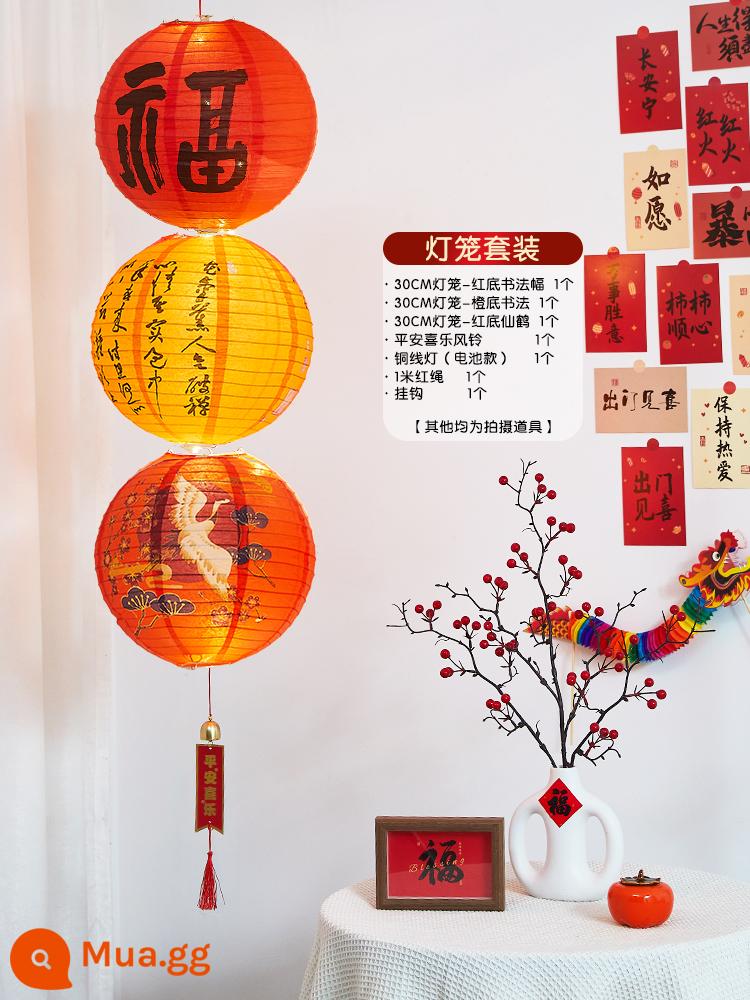 福
人生得
須盡
长安宁
红红
火火
如愿
暴
灯笼套装
· 30CM灯笼-红底书法幅 1个
· 30CM灯笼-橙底书法 1个
· 30CM灯笼-红底仙鹤 1个
· 平安喜乐风铃 1个
· 铜线灯（电池款） 1个
· 1米红绳 1个
· 挂钩 1个
【其他均为拍摄道具】
万事胜意
柿柿
顺心
出门见喜
保持热爱
出门
见喜
平安喜乐
福
福
Blessing
Mua.gg